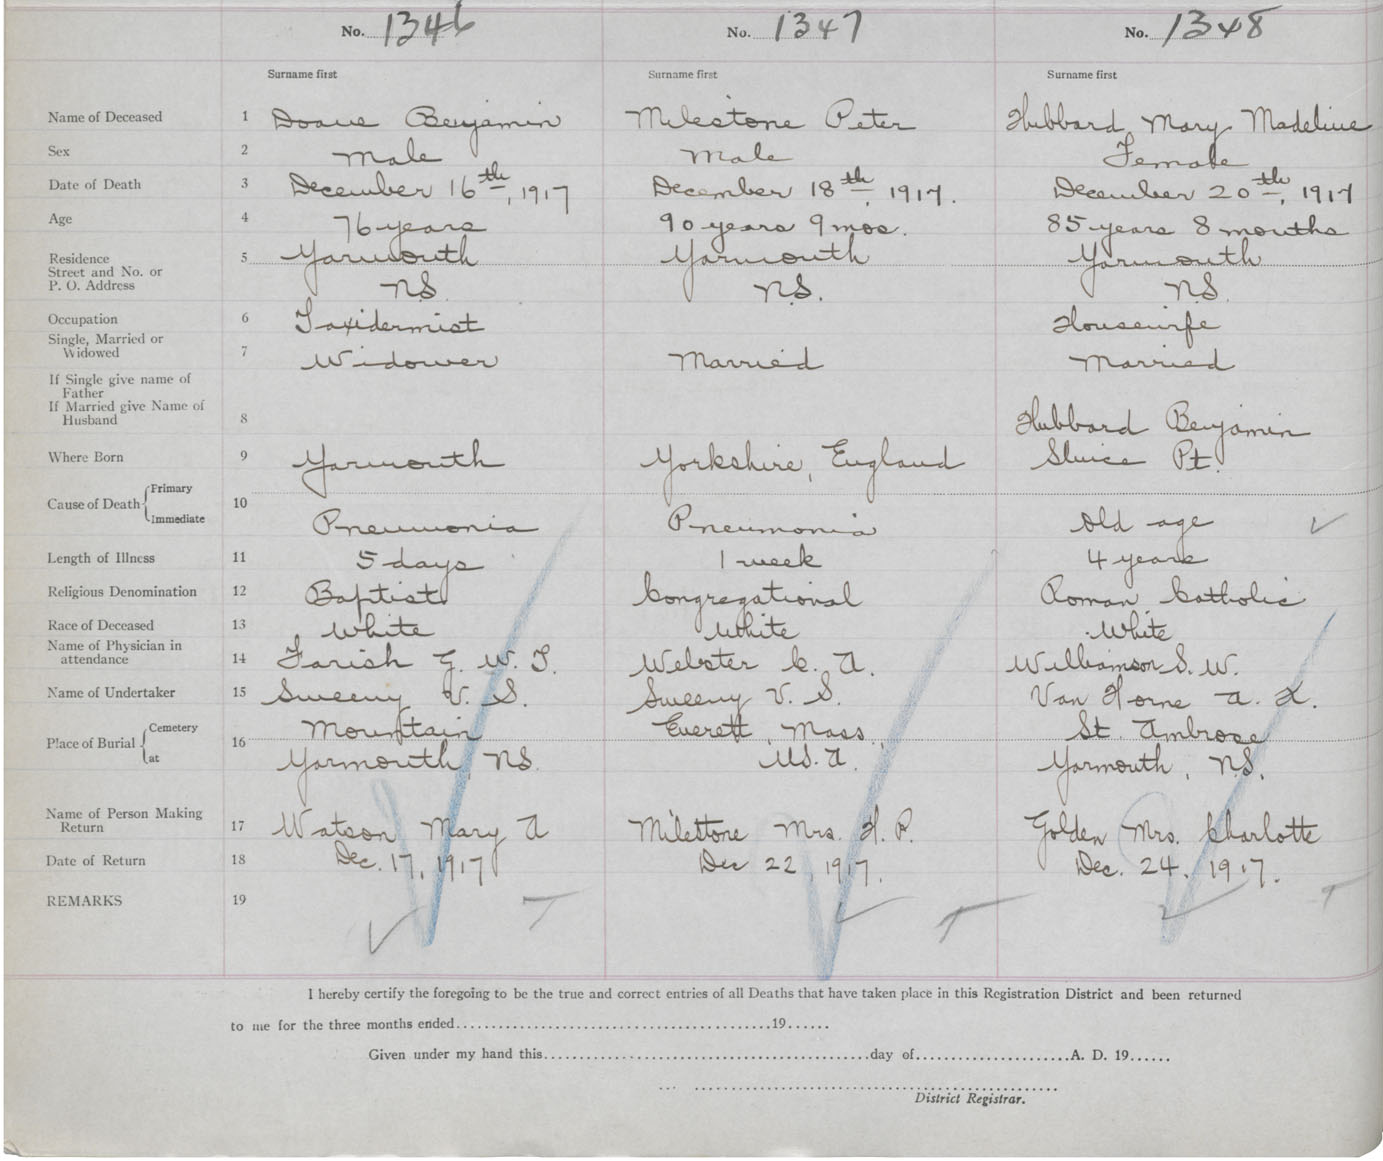 No. 1346 No. 1347 No. 1348
Surname first Surname first Surname first
Name of Deceased 1 Doane Benjamin Milestone Peter Hubbard, Mary Madeline
Sex 2 Male Male Female
Date of Death 3 December 16th, 1917 December 18th, 1917. December 20th, 1917
Age 4 76 years 90 years 9 mos. 85 years 8 months
Residence 5 Yarmouth Yarmouth Yarmouth
Street and No. or
P. O. Address N.S. N.S. N.S.
Occupation 6 Taxidermist Housewife
Single, Married or
Widowed 7 Widower Married Married
If Single give name of
Father
If Married give Name of
Husband 8 Hubbard Benjamin
Where Born 9 Yarmouth Yorkshire, England Sluice Pt.
Primary
Cause of Death 10
Immediate Pneumonia Pneumonia Old age
Length of Illness 11 5 days 1 week 4 years
Religious Denomination 12 Baptist Congregational Roman Catholic
Race of Deceased 13 White White White
Name of Physician in
attendance 14 Farish G. W. T. Webster C. A. Williamson S. W.
Name of Undertaker 15 Sweeny V. S. Sweeny V. S. Van Horne A. K.
Cemetery Mountain Everett, Mass., St. Ambrose
Place of Burial 16
at Yarmouth, N.S. U.S.A. Yarmouth, N.S.
Name of Person Making
Return 17 Watson Mary A Milestone Mrs. H. P. Golden Mrs. Charlotte
Date of Return 18 Dec. 17, 1917 Dec 22, 1917. Dec. 24, 1917.
REMARKS 19
I hereby certify the foregoing to be the true and correct entries of all Deaths that have taken place in this Registration District and been returned
to me for the three months ended..........19......
Given under my hand this..........day of..........A. D. 19......
District Registrar.